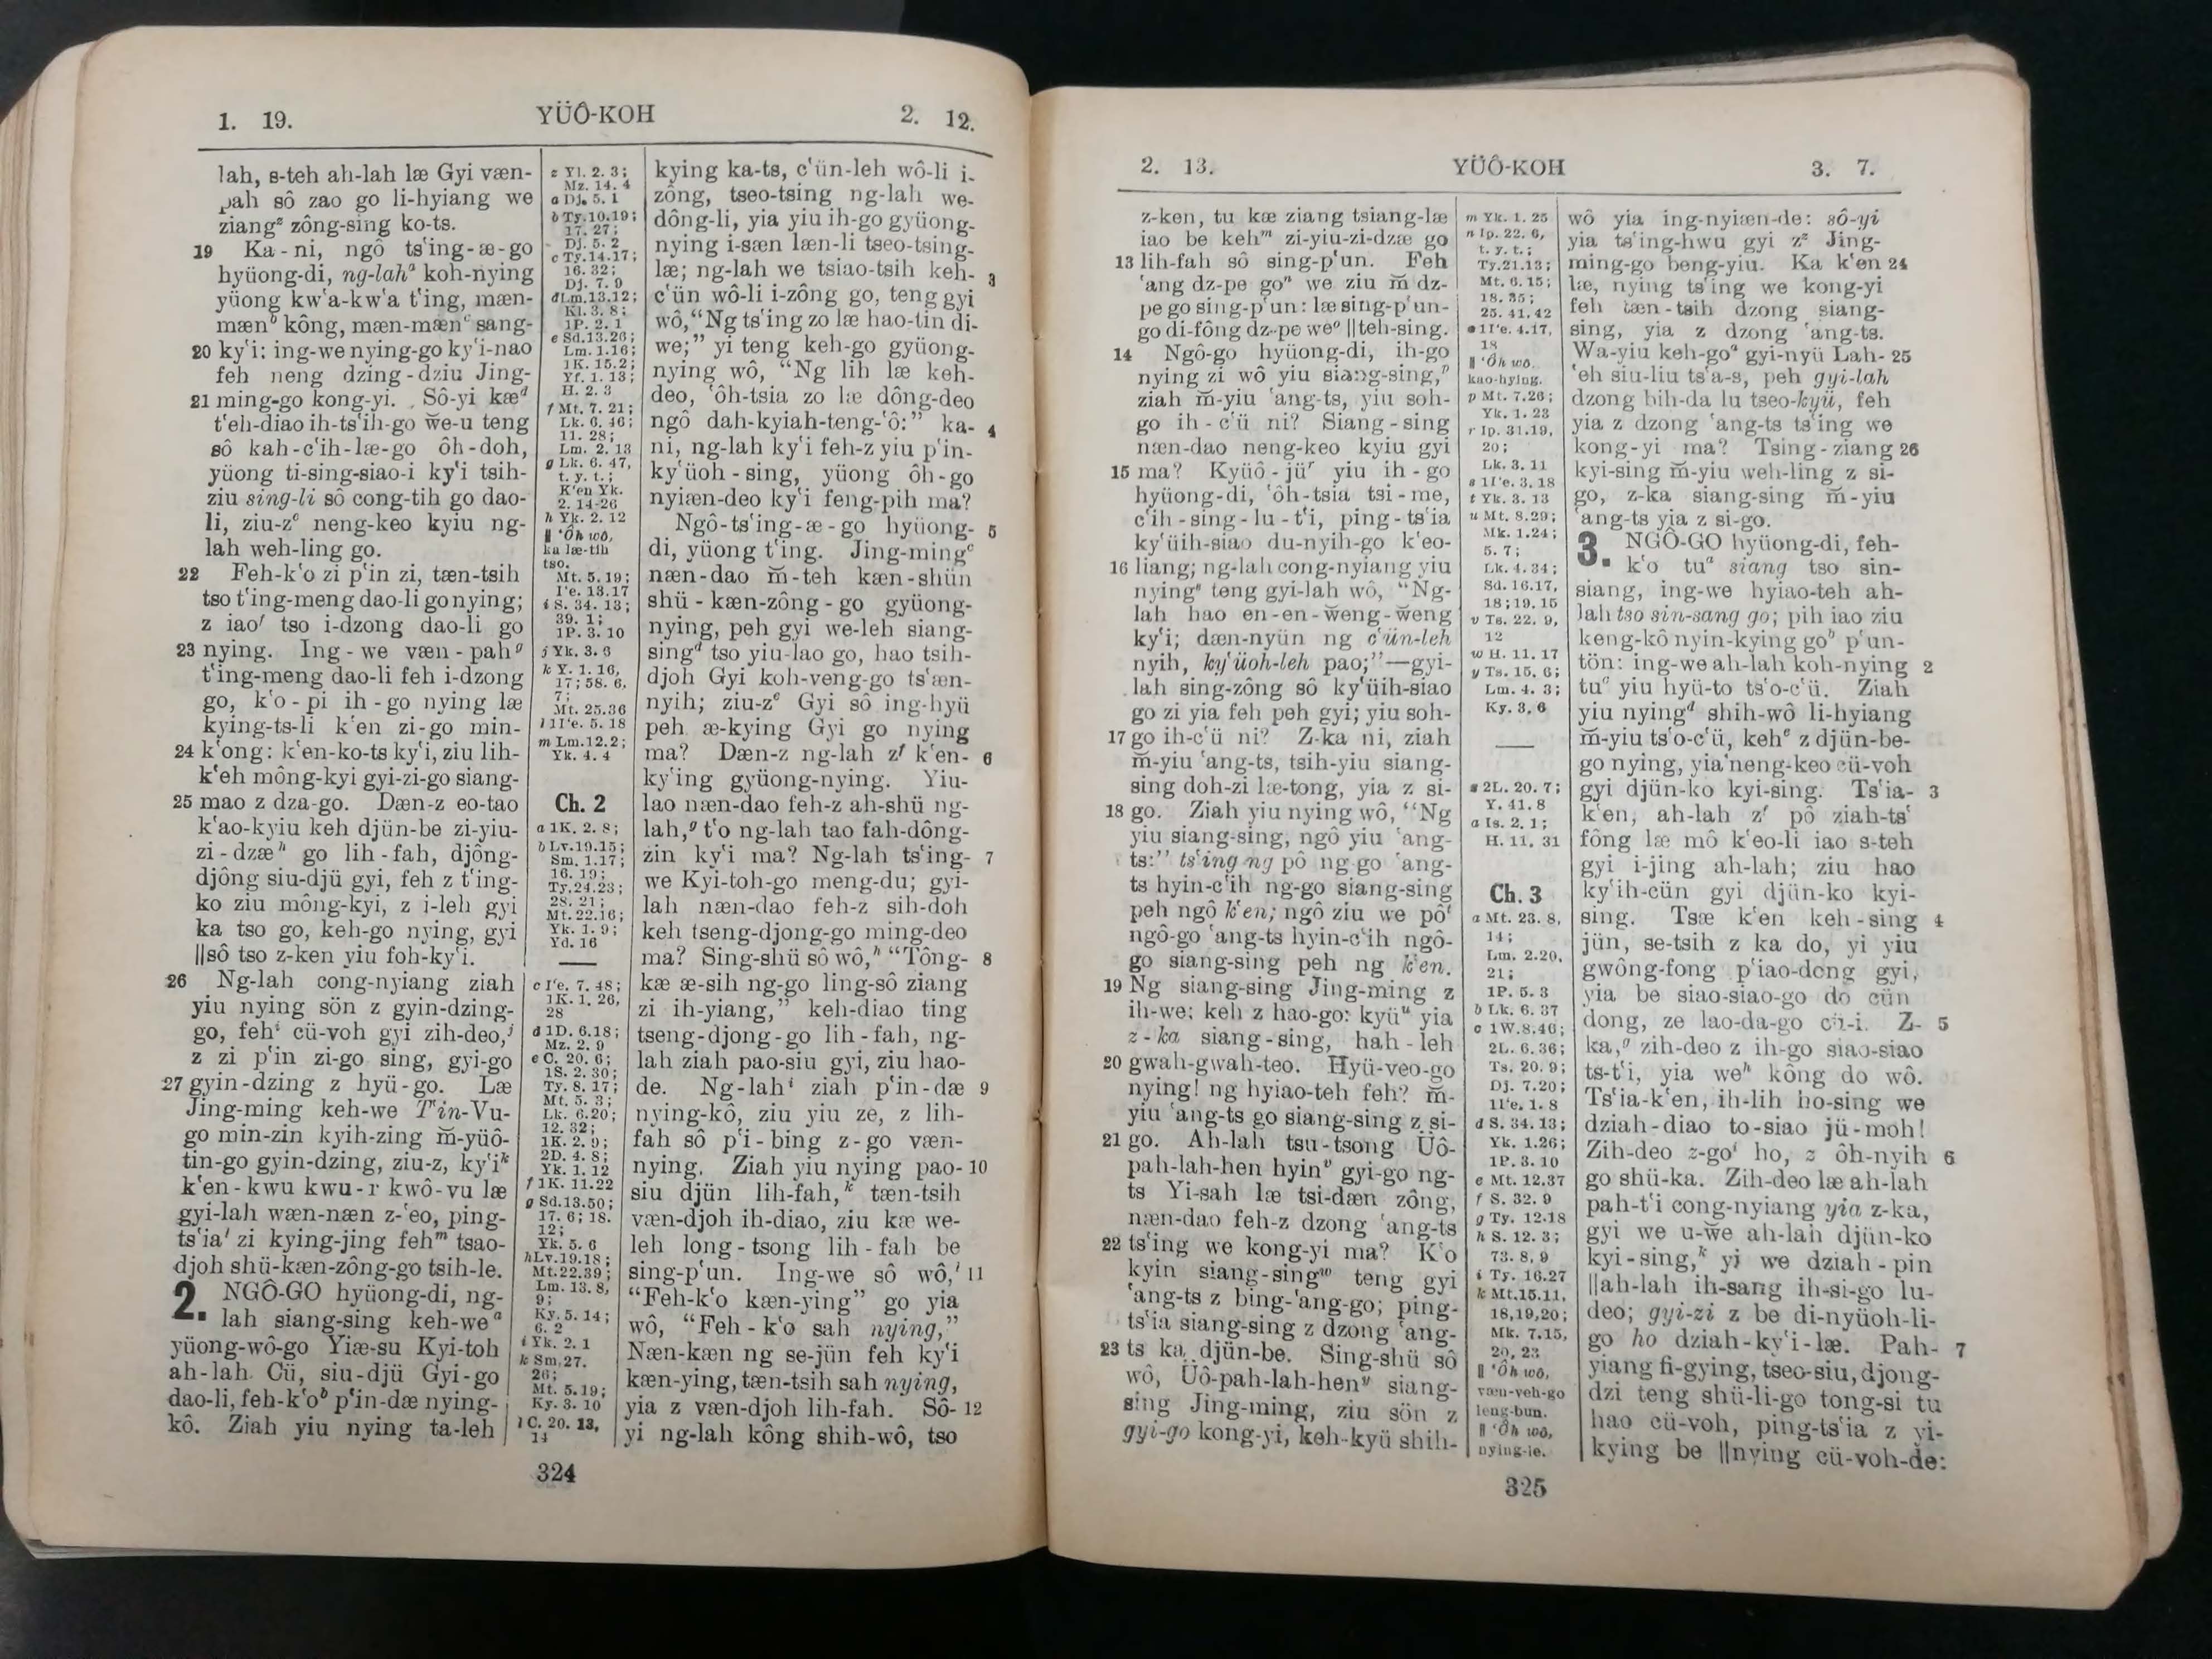 1. 19.
YÜÔ-KOH
2. 12.
lah, s-teh ah-lah læ Gyi væn-
pah sô zao go li-hyiang we
ziangᶻ zông-sing ko-ts.
19 Ka-ni, ngô ts‘ing-æ-go
hyüong-di, ng-lahᵃ koh-nying
yüong kw‘a-kw‘a t‘ing, mæn-
mænᵇ kông, mæn-mænᶜ sang-
20 ky‘i: ing-we nying-go ky‘i-nao
feh neng dzing-dziu Jing-
21 ming-go kong-yi. Sô-yi kæᵈ
t‘eh-diao ih-ts‘ih-go w̆e-u teng
sô kah-c‘ih-læ-go ôh-doh,
yüong ti-sing-siao-i ky‘i tsih-
ziu sing-li sô cong-tih go dao-
li, ziu-zᵉ neng-keo kyiu ng-
lah weh-ling go.
22 Feh-k‘o zi p‘in zi, tæn-tsih
tso t‘ing-meng dao-li go nying;
z iaoᶠ tso i-dzong dao-li go
23 nying. Ing-we væn-pahᵍ
t‘ing-meng dao-li feh i-dzong
go, k‘o-pi ih-go nying læ
kying-ts-li k‘en zi-go min-
24 k‘ong: k‘en-ko-ts ky‘i, ziu lih-
k‘eh mông-kyi gyi-zi-go siang-
25 mao z dza-go. Dæn-z eo-tao
k‘ao-kyiu keh djün-be zi-yiu-
zi-dzæʰ go lih-fah, djông-
djông siu-djü gyi, feh z t‘ing-
ko ziu mông-kyi, z i-leh gyi
ka tso go, keh-go nying, gyi
‖sô tso z-ken yiu foh-ky‘i.
26 Ng-lah cong-nyiang ziah
yiu nying sön z gyin-dzing-
go, fehⁱ cü-voh gyi zih-deo,ʲ
z zi p‘in zi-go sing, gyi-go
27 gyin-dzing z hyü-go. Læ
Jing-ming keh-we T‘in-Vu-
go min-zin kyih-zing m̆-yüô-
tin-go gyin-dzing, ziu-z, ky‘iᵏ
k‘en-kwu kwu-r kwô-vu læ
gyi-lah wæn-næn z-‘eo, ping-
ts‘iaˡ zi kying-jing fehᵐ tsao-
djoh shü-kæn-zông-go tsih-le.
2. NGÔ-GO hyüong-di, ng-
lah siang-sing keh-weᵃ
yüong-wô-go Yiæ-su Kyi-toh
ah-lah Cü, siu-djü Gyi-go
dao-li, feh-k‘oᵇ p‘in-dæ nying-
kô. Ziah yiu nying ta-leh
z Yl. 2. 3;
Mz. 14. 4
a Dj. 5. 1
b Ty. 10. 19;
17. 27;
Dj. 5. 2
c Ty. 14. 17;
16. 32;
Dj. 7. 9
d Lm. 13. 12;
Kl. 3. 8;
1P. 2. 1
e Sd. 13. 26;
Lm. 1. 16;
1K. 15. 2;
Yf. 1. 13;
H. 2. 3
f Mt. 7. 21;
Lk. 6. 46;
11. 28;
Lm. 2. 13
g Lk. 6. 47,
t. y. t.;
K‘en Yk.
2. 14-26
h Yk. 2. 12
‖ ‘Ôh wô,
ka læ-tih
tso.
Mt. 5. 19;
I‘e. 13. 17
i S. 34. 13;
39. 1;
1P. 3. 10
j Yk. 3. 6
k Y. 1. 16,
17; 58. 6,
7;
Mt. 25. 36
l 1I‘e. 5. 18
m Lm. 12. 2;
Yk. 4. 4
Ch. 2
a 1K. 2. 8;
b Lv. 19. 15;
Sm. 1. 17;
16. 19;
Ty. 24. 23;
28. 21;
Mt. 22. 16;
Yk. 1. 9;
Yd. 16
c I‘e. 7. 48;
1K. 1. 26,
28
d 1D. 6. 18;
Mz. 2. 9
e C. 20. 6;
1S. 2. 30;
Ty. 8. 17;
Mt. 5. 3;
Lk. 6. 20;
12. 32;
1K. 2. 9;
2D. 4. 8;
Yk. 1. 12
f 1K. 11. 22
g Sd. 13. 50;
17. 6; 18.
12;
Yk. 5. 6
h Lv. 19. 18;
Mt. 22. 39;
Lm. 13. 8,
9;
Ky. 5. 14;
6. 2
i Yk. 2. 1
k Sm. 27.
26;
Mt. 5. 19;
Ky. 3. 10
l C. 20. 13,
14
kying ka-ts, c‘ün-leh wô-li i-
zông, tseo-tsing ng-lah we-
dông-li, yia yiu ih-go gyüong-
nying i-sæn læn-li tseo-tsing-
læ; ng-lah we tsiao-tsih keh- 3
c‘ün wô-li i-zông go, teng gyi
wô, “Ng ts‘ing zo læ hao-tin di-
we;” yi teng keh-go gyüong-
nying wô, “Ng lih læ keh-
deo, ‘ôh-tsia zo læ dông-deo
ngô dah-kyiah-teng-‘ô:” ka- 4
ni, ng-lah ky‘i feh-z yiu p‘in-
ky‘üoh-sing, yüong ôh-go
nyiæn-deo ky‘i feng-pih ma?
Ngô-ts‘ing-æ-go hyüong- 5
di, yüong t‘ing. Jing-mingᶜ
næn-dao m̆-teh kæn-shün
shü-kæn-zông-go gyüong-
nying, peh gyi we-leh siang-
singᵈ tso yiu-lao go, hao tsih-
djoh Gyi koh-veng-go ts‘æn-
nyih; ziu-zᵉ Gyi sô ing-hyü
peh æ-kying Gyi go nying
ma? Dæn-z ng-lah zᶠ k‘en- 6
ky‘ing gyüong-nying. Yiu-
lao næn-dao feh-z ah-shü ng-
lah,ᵍ t‘o ng-lah tao fah-dông-
zin ky‘i ma? Ng-lah ts‘ing- 7
we Kyi-toh-go meng-du; gyi-
lah næn-dao feh-z sih-doh
keh tseng-djong-go ming-deo
ma? Sing-shü sô wô,ʰ “Tông- 8
kæ æ-sih ng-go ling-sô ziang
zi ih-yiang,” keh-diao ting
tseng-djong-go lih-fah, ng-
lah ziah pao-siu gyi, ziu hao-
de. Ng-lahⁱ ziah p‘in-dæ 9
nying-kô, ziu yiu ze, z lih-
fah sô p‘i-bing z-go væn-
nying. Ziah yiu nying pao- 10
siu djün lih-fah,ᵏ tæn-tsih
væn-djoh ih-diao, ziu kæ we-
leh long-tsong lih-fah be
sing-p‘un. Ing-we sô wô,ˡ 11
“Feh-k‘o kæn-ying” go yia
wô, “Feh-k‘o sah nying,”
Næn-kæn ng se-jün feh ky‘i
kæn-ying, tæn-tsih sah nying,
yia z væn-djoh lih-fah. Sô- 12
yi ng-lah kông shih-wô, tso
324
2. 13.
YÜÔ-KOH
3. 7.
z-ken, tu kæ ziang tsiang-læ
iao be kehᵐ zi-yiu-zi-dzæ go
13 lih-fah sô sing-p‘un. Feh
‘ang dz-pe goⁿ we ziu m̆ dz-
pe go sing-p‘un: læ sing-p‘un-
go di-fông dz-pe weᵒ ‖teh-sing.
14 Ngô-go hyüong-di, ih-go
nying zi wô yiu siang-sing,ᵖ
ziah m̆-yiu ‘ang-ts, yiu soh-
go ih-c‘ü ni? Siang-sing
næn-dao neng-keo kyiu gyi
15 ma? Kyüô-jüʳ yiu ih-go
hyüong-di, ‘ôh-tsia tsi-me,
c‘ih-sing-lu-t‘i, ping-ts‘ia
ky‘üih-siao du-nyih-go k‘eo-
16 liang; ng-lah cong-nyiang yiu
nyingˢ teng gyi-lah wô, “Ng-
lah hao en-en-w̆eng-w̆eng
ky‘i; dæn-nyün ng c‘ün-leh
nyih, ky‘üoh-leh pao;”—gyi-
lah sing-zông sô ky‘üih-siao
go zi yia feh peh gyi; yiu soh-
17 go ih-c‘ü ni? Z-ka ni, ziah
m̆-yiu ‘ang-ts, tsih-yiu siang-
sing doh-zi læ-tong, yia z si-
18 go. Ziah yiu nying wô, “Ng
yiu siang-sing, ngô yiu ‘ang-
ts:” ts‘ing ng pô ng-go ‘ang-
ts hyin-c‘ih ng-go siang-sing
peh ngô k‘en; ngô ziu we pôᵗ
ngô-go ‘ang-ts hyin-c‘ih ngô-
go siang-sing peh ng k‘en.
19 Ng siang-sing Jing-ming z
ih-we; keh z hao-go: kyüᵘ yia
z-ka siang-sing, hah-leh
20 gwah-gwah-teo. Hyü-veo-go
nying! ng hyiao-teh feh? m̆-
yiu ‘ang-ts go siang-sing z si-
21 go. Ah-lah tsu-tsong Üô-
pah-lah-hen hyinᵛ gyi-go ng-
ts Yi-sah læ tsi-dæn zông,
næn-dao feh-z dzong ‘ang-ts
22 ts‘ing we kong-yi ma? K‘o
kyin siang-singʷ teng gyi
‘ang-ts z bing-‘ang-go; ping-
ts‘ia siang-sing z dzong ‘ang-
23 ts ka djün-be. Sing-shü sô
wô, Üô-pah-lah-henʸ siang-
sing Jing-ming, ziu sön z
gyi-go kong-yi, keh-kyü shih-
m Yk. 1. 25
n Ip. 22. 6,
t. y. t.;
Ty. 21. 13;
Mt. 6. 15;
18. 35;
25. 41, 42
o 1I‘e. 4. 17,
18
‖ ‘Ôh wô,
kao-hying.
p Mt. 7. 26;
Yk. 1. 23
r Ip. 31. 19,
20;
Lk. 3. 11
s 1I‘e. 3. 18
t Yk. 3. 13
u Mt. 8. 29;
Mk. 1. 24;
5. 7;
Lk. 4. 34;
Sd. 16. 17,
18; 19. 15
v Ts. 22. 9,
12
w H. 11. 17
y Ts. 15. 6;
Lm. 4. 3;
Ky. 3. 6
z 2L. 20. 7;
Y. 41. 8
a Is. 2. 1;
H. 11. 31
Ch. 3
a Mt. 23. 8,
14;
Lm. 2. 20,
21;
1P. 5. 3
b Lk. 6. 37
c 1W. 8. 46;
2L. 6. 36;
Ts. 20. 9;
Dj. 7. 20;
1I‘e. 1. 8
d S. 34. 13;
Yk. 1. 26;
1P. 3. 10
e Mt. 12. 37
f S. 32. 9
g Ty. 12. 18
h S. 12. 3;
73. 8, 9
i Ty. 16. 27
k Mt. 15. 11,
18, 19, 20;
Mk. 7. 15,
20, 23
‖ ‘Ôh wô,
væn-veh-go
leng-bun.
‖ ‘Ôh wô,
nying-le.
wô yia ing-nyiæn-de: sô-yi
yia ts‘ing-hwu gyi zᶻ Jing-
ming-go beng-yiu. Ka k‘en 24
læ, nying ts‘ing we kong-yi
feh tæn-tsih dzong siang-
sing, yia z dzong ‘ang-ts.
Wa-yiu keh-goᵃ gyi-nyü Lah- 25
‘eh siu-liu ts‘a-s, peh gyi-lah
dzong bih-da lu tseo-kyü, feh
yia z dzong ‘ang-ts ts‘ing we
kong-yi ma? Tsing-ziang 26
kyi-sing m̆-yiu weh-ling z si-
go, z-ka siang-sing m̆-yiu
‘ang-ts yia z si-go.
3. NGÔ-GO hyüong-di, feh-
k‘o tuᵃ siang tso sin-
siang, ing-we hyiao-teh ah-
lah tso sin-sang go; pih iao ziu
keng-kô nyin-kying goᵇ p‘un-
tön: ing-we ah-lah koh-nying 2
tuᶜ yiu hyü-to ts‘o-c‘ü. Ziah
yiu nyingᵈ shih-wô li-hyiang
m̆-yiu ts‘o-c‘ü, kehᵉ z djün-be-
go nying, yia neng-keo cü-voh
gyi djün-ko kyi-sing. Ts‘ia- 3
k‘en, ah-lah zᶠ pô ziah-ts‘
fông læ mô k‘eo-li iao s-teh
gyi i-jing ah-lah; ziu hao
ky‘ih-cün gyi djün-ko kyi-
sing. Tsæ k‘en keh-sing 4
jün, se-tsih z ka do, yi yiu
gwông-fong p‘iao-dong gyi,
yia be siao-siao-go do cün
dong, ze lao-da-go cü-i. Z- 5
ka,ᵍ zih-deo z ih-go siao-siao
ts-t‘i, yia weʰ kông do wô.
Ts‘ia-k‘en, ih-lih ho-sing we
dziah-diao to-siao jü-moh!
Zih-deo z-goⁱ ho, z ôh-nyih 6
go shü-ka. Zih-deo læ ah-lah
pah-t‘i cong-nyiang yia z-ka,
gyi we u-w̆e ah-lah djün-ko
kyi-sing,ᵏ yi we dziah-pin
‖ah-lah ih-sang ih-si-go lu-
deo; gyi-zi z be di-nyüoh-li-
go ho dziah-ky‘i-læ. Pah- 7
yiang fi-gying, tseo-siu, djong-
dzi teng shü-li-go tong-si tu
hao cü-voh, ping-ts‘ia z yi-
kying be ‖nying cü-voh-de:
325